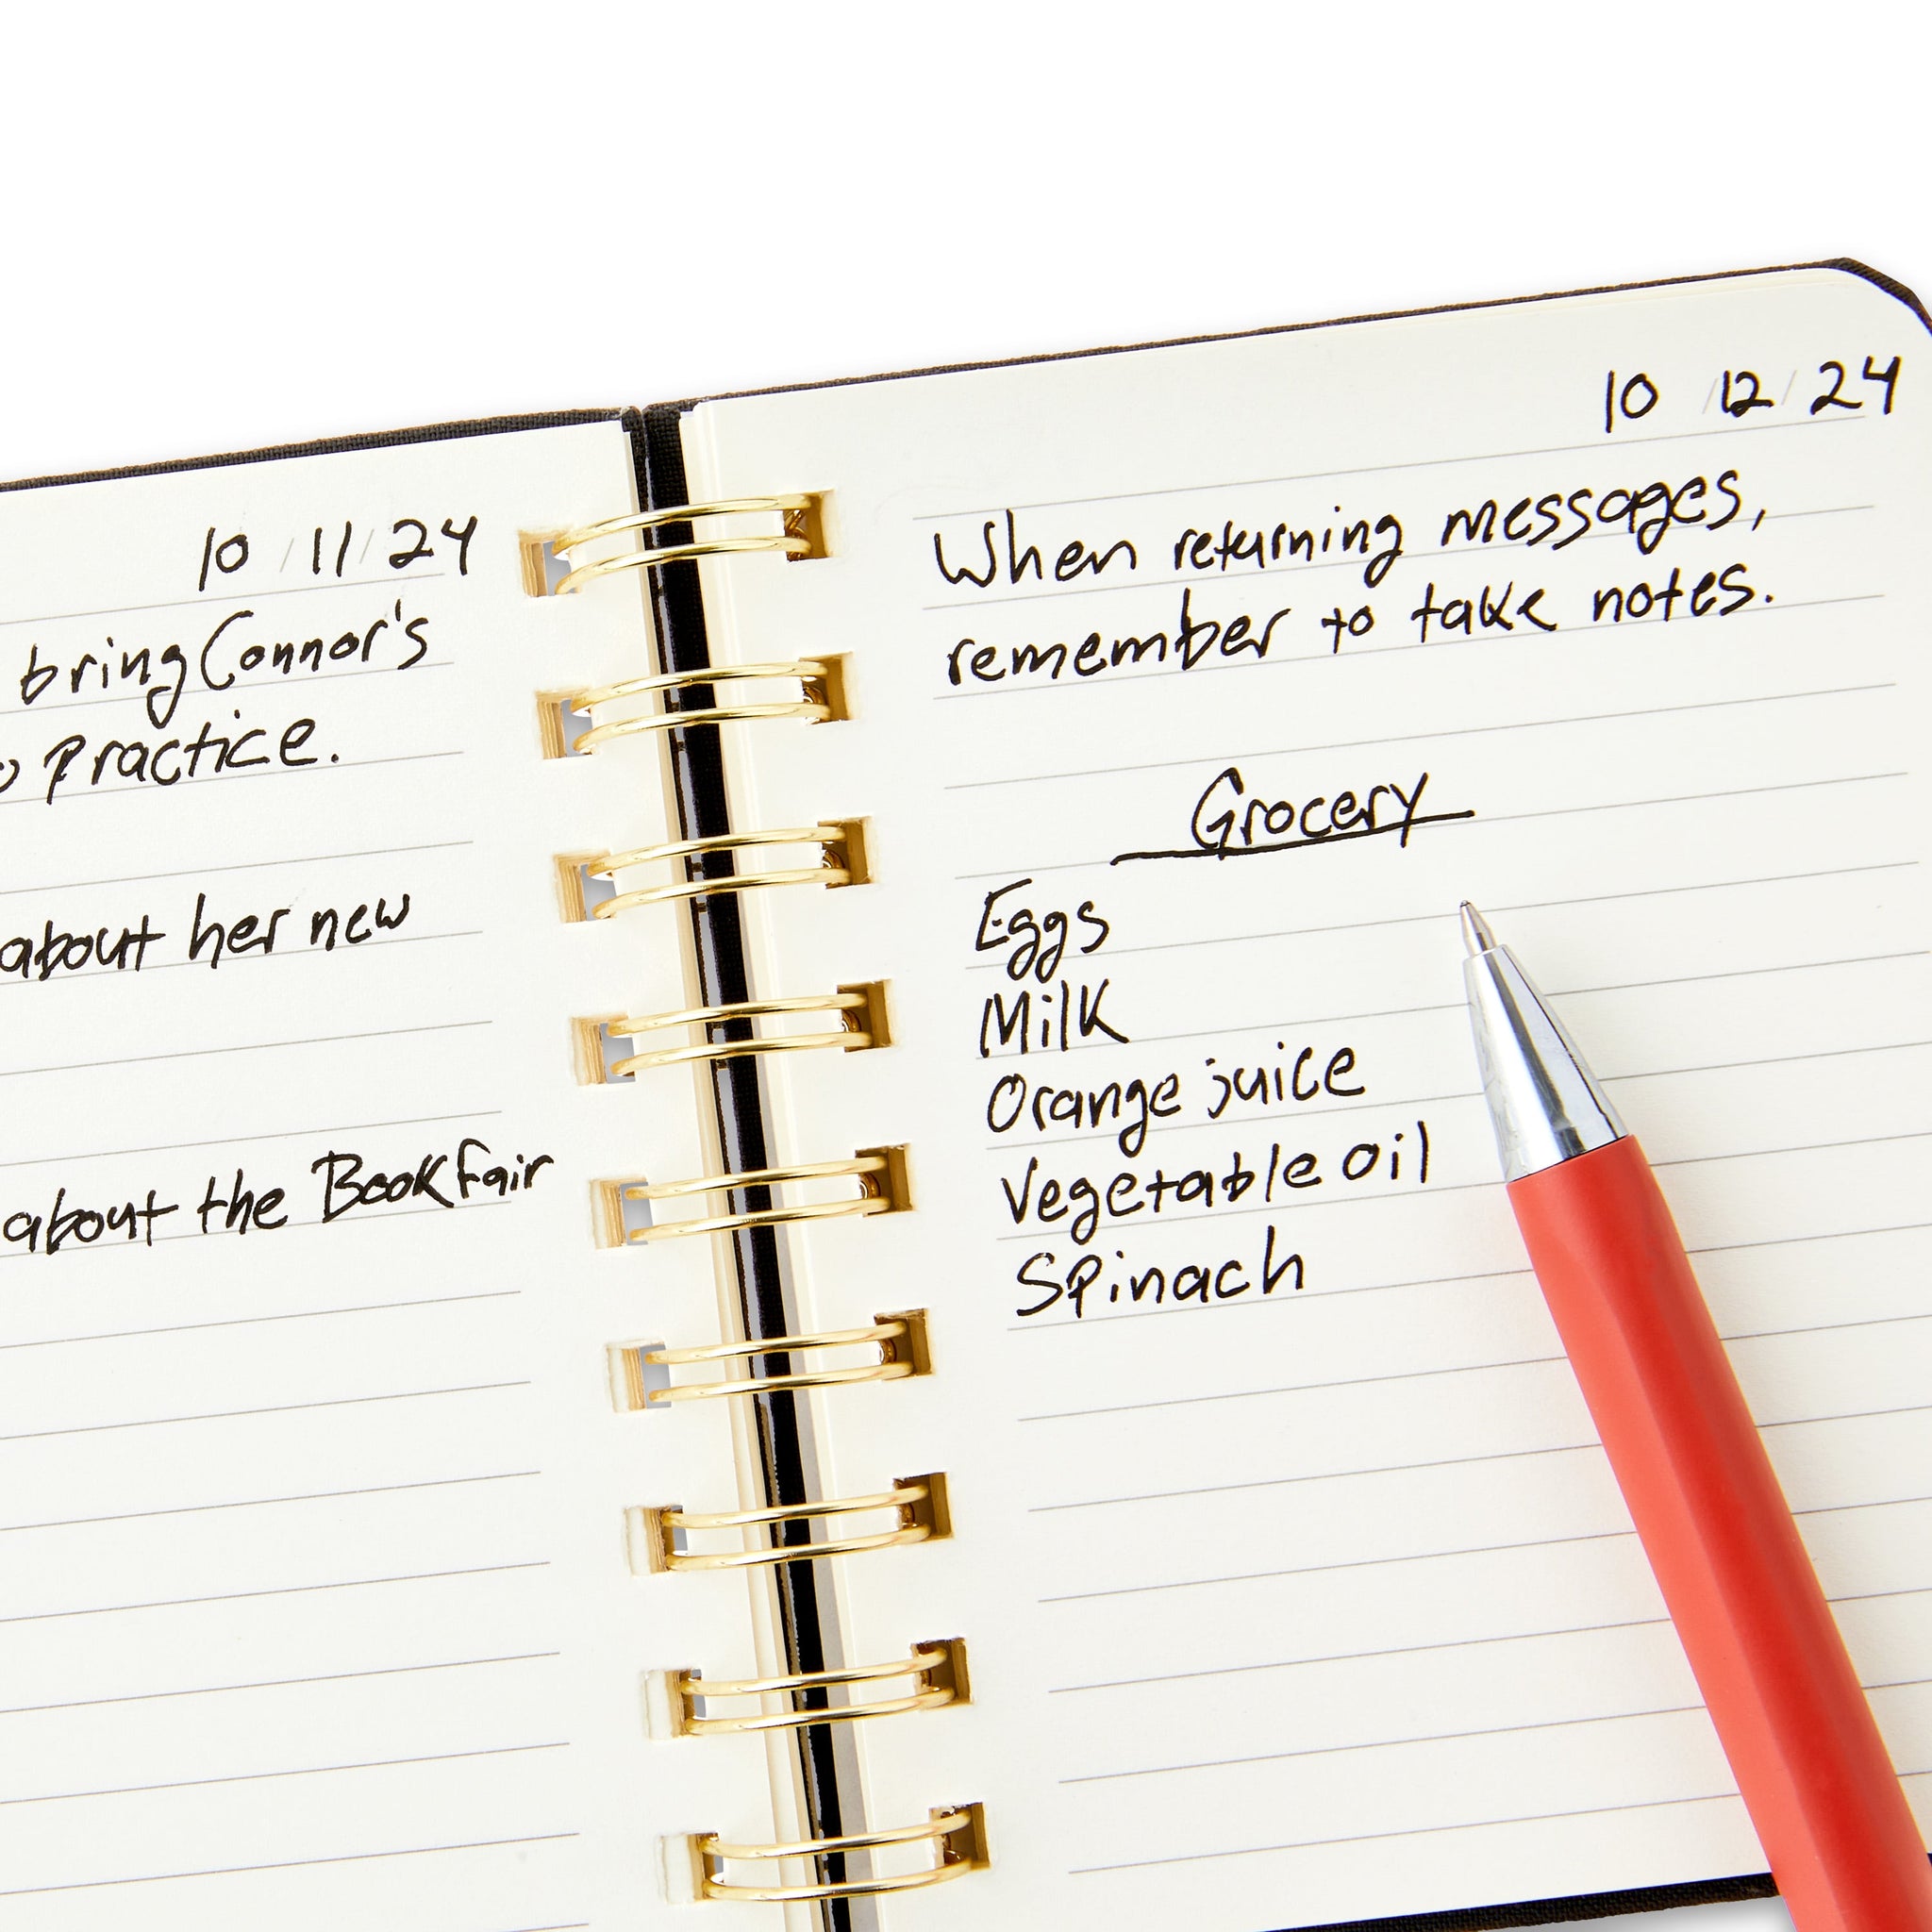 10/11/24
bring Connor's
practice.
about her new
about the Book fair
10/12/24
When returning messages,
remember to take notes.
Grocery
Eggs
Milk
Orange juice
Vegetable oil
Spinach